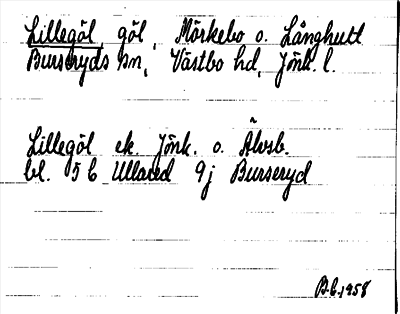 Lillegöl, göl, Mörkebo o. Långhult
Burseryds sn, Västbo hd, Jönk. l.
Lillegöl ek. Jönk. o. Älvsb.
bl. 5 C Ullared 9j Burseryd
B.C. 1958